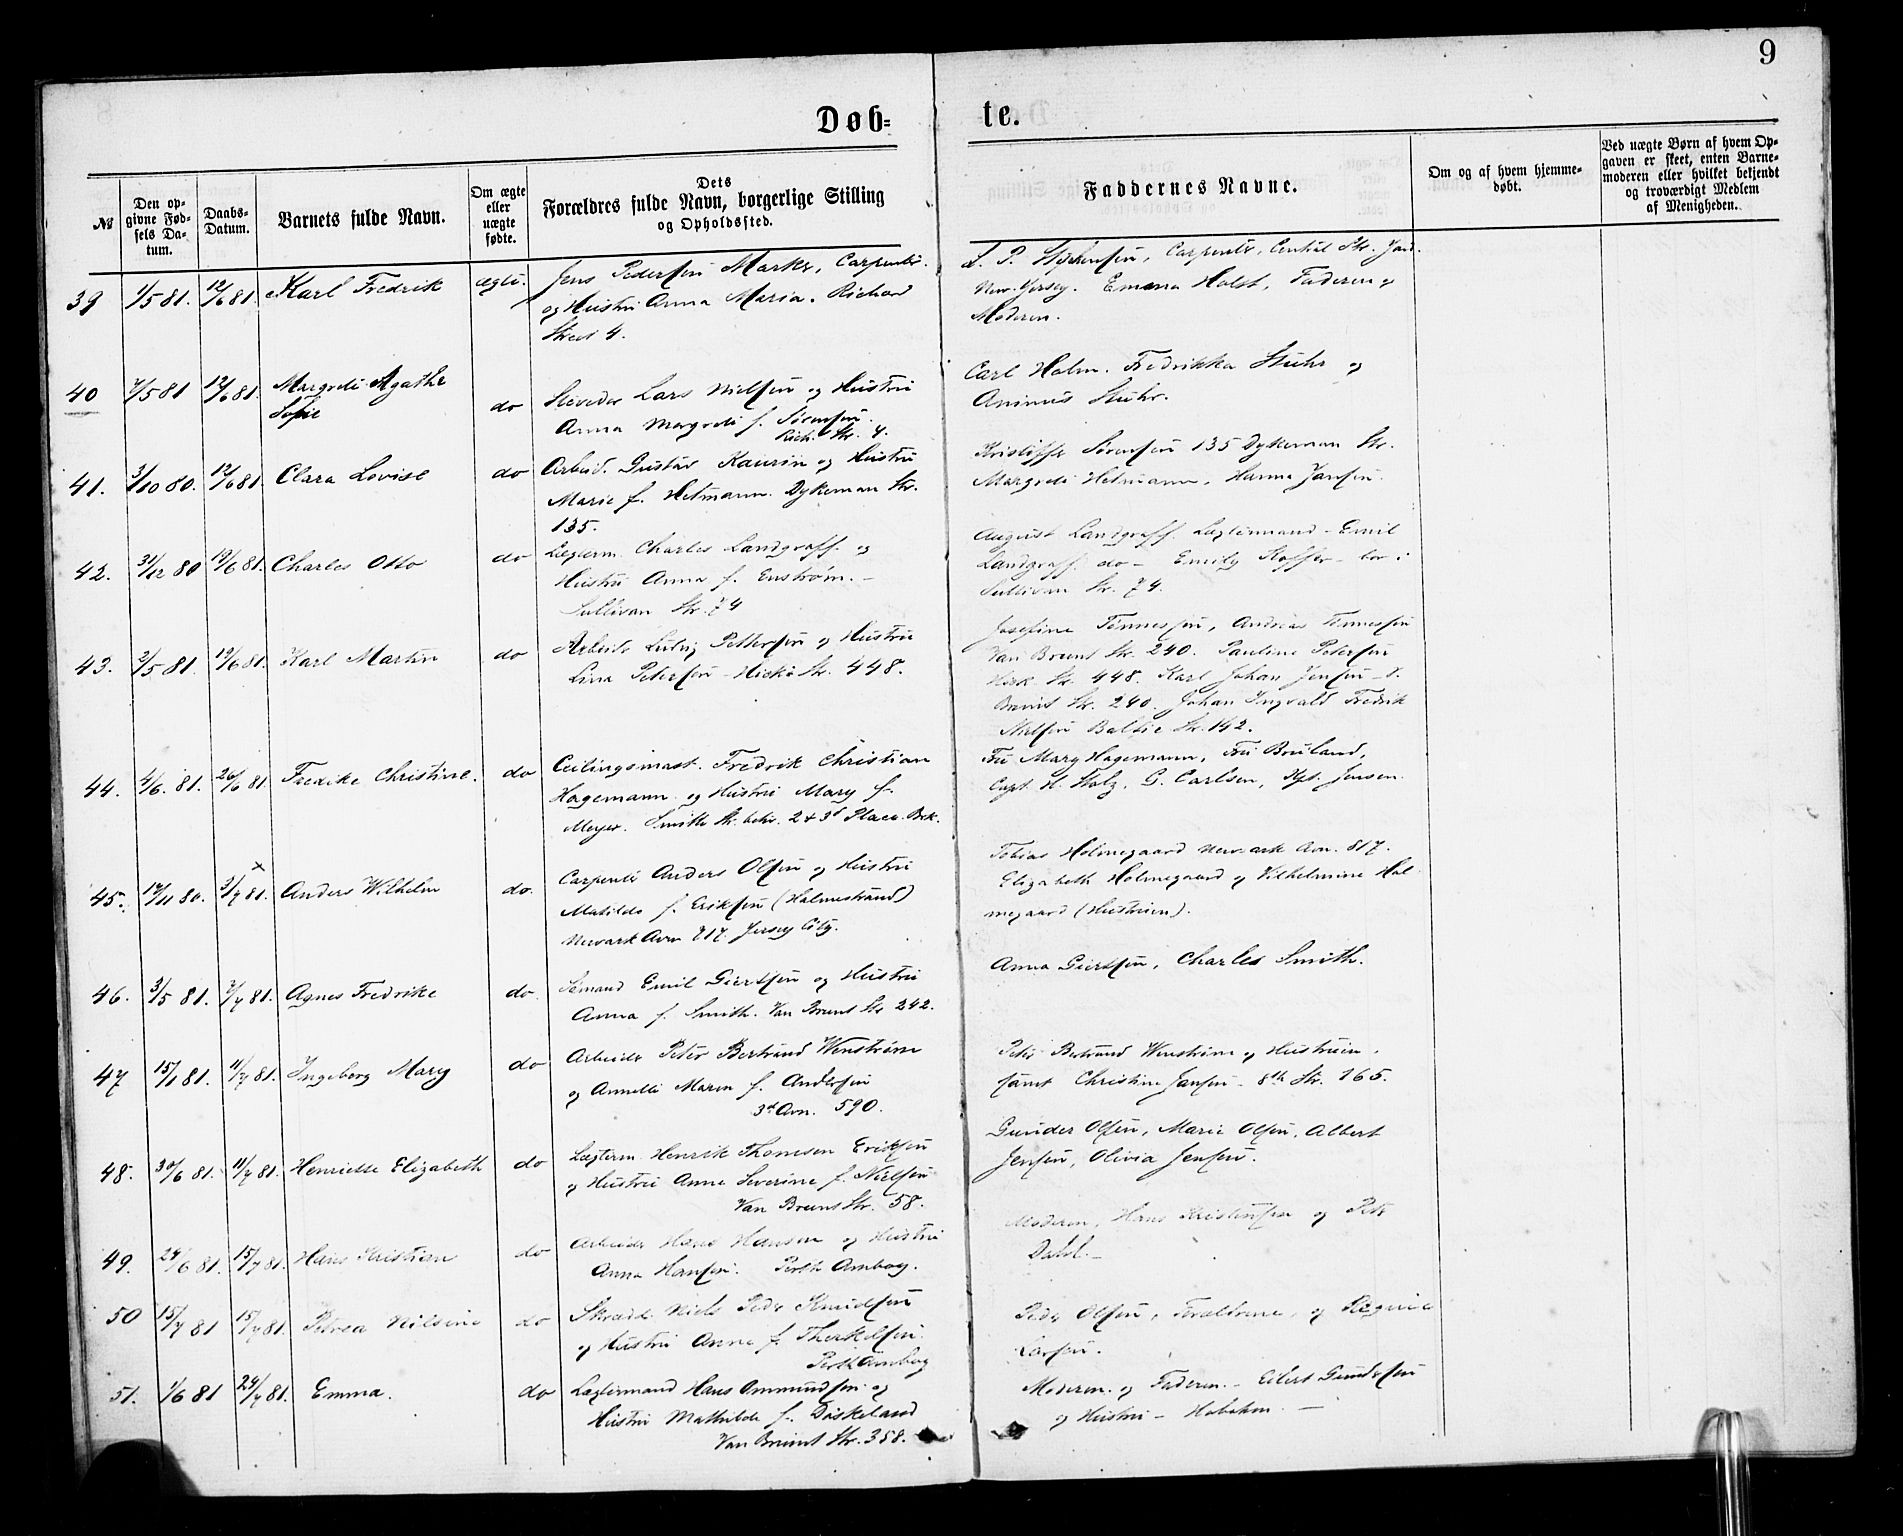 9
Døb=
te.
№
Den op-
givne Fød-
sels Da-
tum.
Daabs-
Datum.
Barnets fulde Navn.
Om ægte
eller
uægte
fødte.
Dets
Forældres fulde Navn, borgerlige Stilling
og Opholdssted.
Faddernes Navne.
Om og af hvem hjemme-
døbt.
Ved uægte Børn af hvem Op-
gaven er skeet, enten Barne-
moderen eller hvilket bekjendt
og troværdigt Medlem
af Menigheden.
39 1/5 81. 12/6 81. Karl Fredrik ægte.
Jens Pedersen Marks, Carpenter.
og Hustru Anna Maria. Richard
Street 4.
Carpenter, Central Str.
New Jersey. Emma Holst, Faderen og
Moderen.
40 7/5 81 12/6 81. Margrete Agathe
Sofie
do
Stiveder Lars Nielsen og Hustru
Anna Margrete f. Sørensen.
Rich. Str. 4.
Carl Holm. Fredrikka Stuhr og
Stuhr.
41. 3/10 80. 12/6 81. Clara Lovise do
Arbeid. Gustav Kaurin og Hustru
Marie f. Hetmann. Dykeman Str.
135.
Sørensen 135 Dykeman Str.
Margrete Hetmann, Hanna Jansen.
42. 31/12 80 19/6 81. Charles Otto do
Lægterm. Charles Landgraff. og
Hustru Anna f. Enstrøm. –
Sullivan Str. 74
August Landgraff Lægtermand – Emil
Landgraff do – Emily – bor i
Sullivan Str. 74.
43. 2/5 81. 19/6 81. Karl Martin do
Arbeider Ludvig Pettersen og Hustru
Lina Petersen – Hicks Str. 448.
Josefine Tønnessen, Andreas Tønnessen
Van Brunt Str. 240. Pauline Petersen
Hick Str. 448. Karl Johan Jensen – V.
Brunt Str. 240. Johan Ingvald Fredrik
Nielsen Baltic Str. 142.
44. 4/6. 81. 26/6 81. Fredike Christine. do
Ceilingsmast. Fredrik Christian
Hagemann og Hustru Mary f.
Meyer. Smith Str. betw. 2 & 3d Place. Brk.
Fru Mary Hagemann, Fru Bruland,
Capt. H. Stolz, G. Carlsen, Jensen.
45. 14/11 80. 3/7 81. x Anders Wilhelm do.
Carpenter Anders Olsen og Hustru
Matilde f. Eriksen (Holmestrand)
Newark Aven 817. Jersey City.
Tobias Holmegaard Newark Aven. 817.
Elizabeth Holmegaard og Vilhelmine Hol-
megaard (Hustruen).
46. 3/5 81. 7/7 81. Agnes Fredrike do.
Sømand Emil Giertsen og Hustru
Anna f. Smith. Van Brunt Str 242.
Anna Giertsen, Charles Smith.
47 15/1 81. 11/7 81. Ingeborg Mary do
Arbeider Peter Bertrand Wenstrøm
og Annette Maren f. Andersen
3d Aven. 590.
Peter Bertrand Wenstrøm og Hustruen,
samt Christine Jansen – 8th Str. 165.
48. 30/6 81. 11/7 81. Henriette Elizabeth do
Lægterm. Henrik Thomsen Eriksen
og Hustru Anne Severine f. Nielsen
Van Brunt Str. 58.
Gunder Olsen, Marie Olsen, Albert
Jensen, Olivia Jensen.
49. 24/6 81. 15/7 81. Hans Kristian do
Arbeider Hans Hansen og Hustru
Anna Hansen. Perth Amboy.
Moderen, Hans Kristensen og Peter
Dahl. –
50 15/7 81 15/7 81. Petrea Nilsine do
Skrædd. Niels Peder Knudsen
og Hustru Anne f. Therkelsen.
Perth Amboy
Peder Olsen, Forældrene, og Regine
Larsen.
51. 1/6 81 24/7 81. Emma. do
Lægtermand Hans Ommundsen og
Hustru Mathilde f. Døskeland
Van Brunt Str. 358.
Moderen og Faderen. – Eilert Gundersen
og Hustru – Hoboken. –